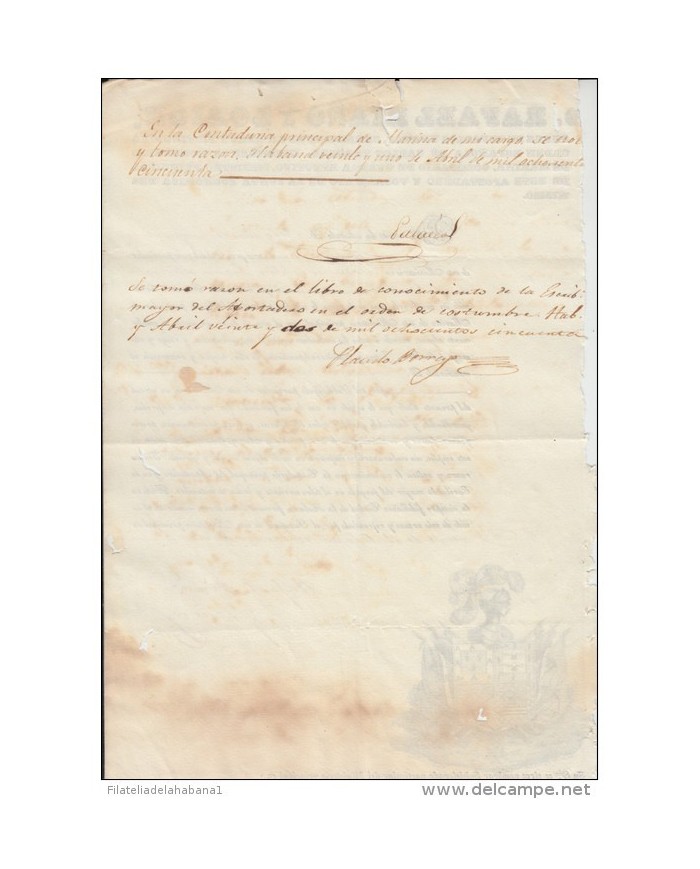 En la Contaduria principal de Marina de mi cargo se
y tomo razon. Habana veinte y uno de Abril de mil ochociento
cincuenta
Se tomó razon en el libro de conocimiento de la Escrib.
mayor del Apostadero en el orden de costumbre Hab.
y Abril veinte y dos de mil ochocientos cincuenta
Placido Borrego
Filateliadelahabana1
www.delcampe.net